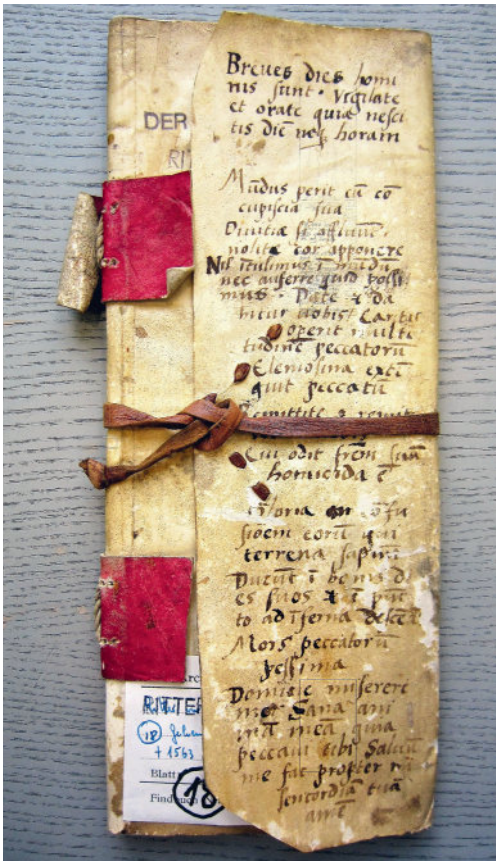 DER
RI
Breves dies homi
nis sunt · Vigilate
et orate quia nesci
tis diē neq horam
Mūdus perit cū cō
cupiscia sua
Divitiæ si affluūt
nolite cor apponere
Nil ītulimus ī mūdū
nec auferre quid possu
mus · Date & da
bitur vobis Caritas
operit multi
tudinē peccatorū
Elemosina extī
guit peccatū
Remittite &
Qui odit frēm suū
homicida ē
Gloria in cōfu
sioēm eorū qui
terrena sapiūt
Ducūt ī bonis di
es suos & ī pūc
to ad īferna descē
Mors peccatorū
pessima
Domine miserere
mei Sana ani
mā meā quia
peccavi tibi Salvū
me fac propter mi
sericordiā tuā
amē
RITTER
18
† 1563
Blatt
Findbuch
18